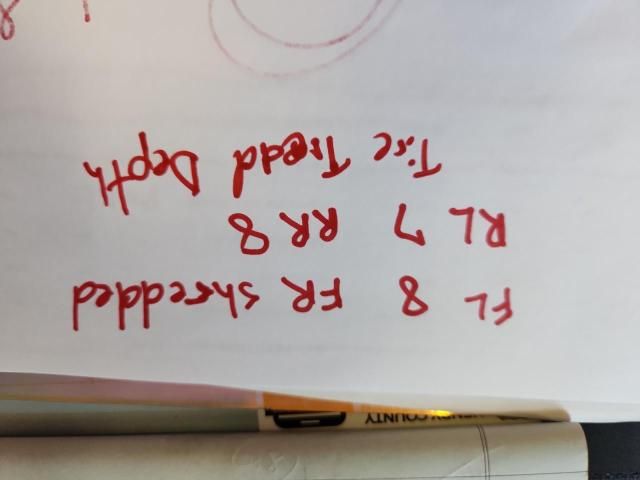 COUNTY
FL 8 FR shredded
RL 7 RR 8
Tire Tread Depth